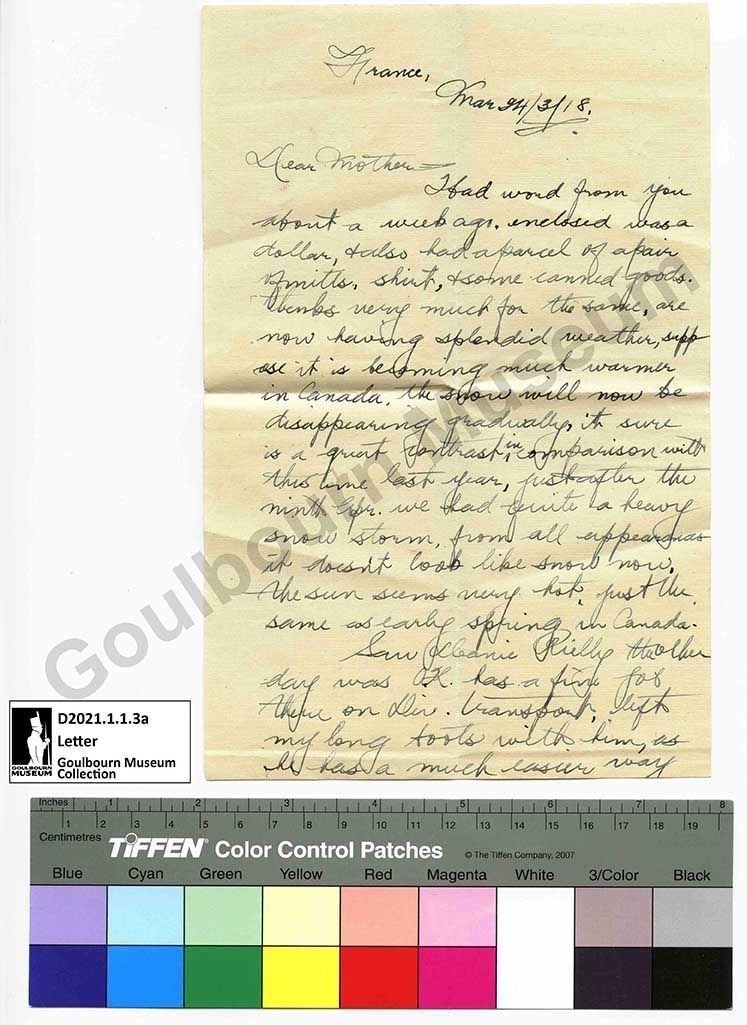 France,
Mar 24/3/18.
Dear Mother
Had word from you
about a week ago. enclosed was a
dollar, & also had a parcel of a pair
of mitts, shirt, & some canned goods.
Thanks very much for the same, are
now having splendid weather, supp
ose it is becoming much warmer
in Canada. the snow will now be
disappearing gradually, it sure
is a great contrast in comparison with
this time last year, just after the
ninth Apr. we had quite a heavy
snow storm, from all appearances
it doesn't look like snow now.
the sun seems very hot, just the
same as early spring in Canada.
Saw Rielly the other
day was OK. has a fine job
there on Div. transport, left
my long boots with him, as
he has a much easier way
Goulbourn Museum
D2021.1.1.3a
Letter
Goulbourn Museum
Collection
GOULBOURN
MUSEUM
Inches 1 2 3 4 5 6 7 8
Centimetres 1 2 3 4 5 6 7 8 9 10 11 12 13 14 15 16 17 18 19
TIFFEN Color Control Patches © The Tiffen Company, 2007
Blue Cyan Green Yellow Red Magenta White 3/Color Black